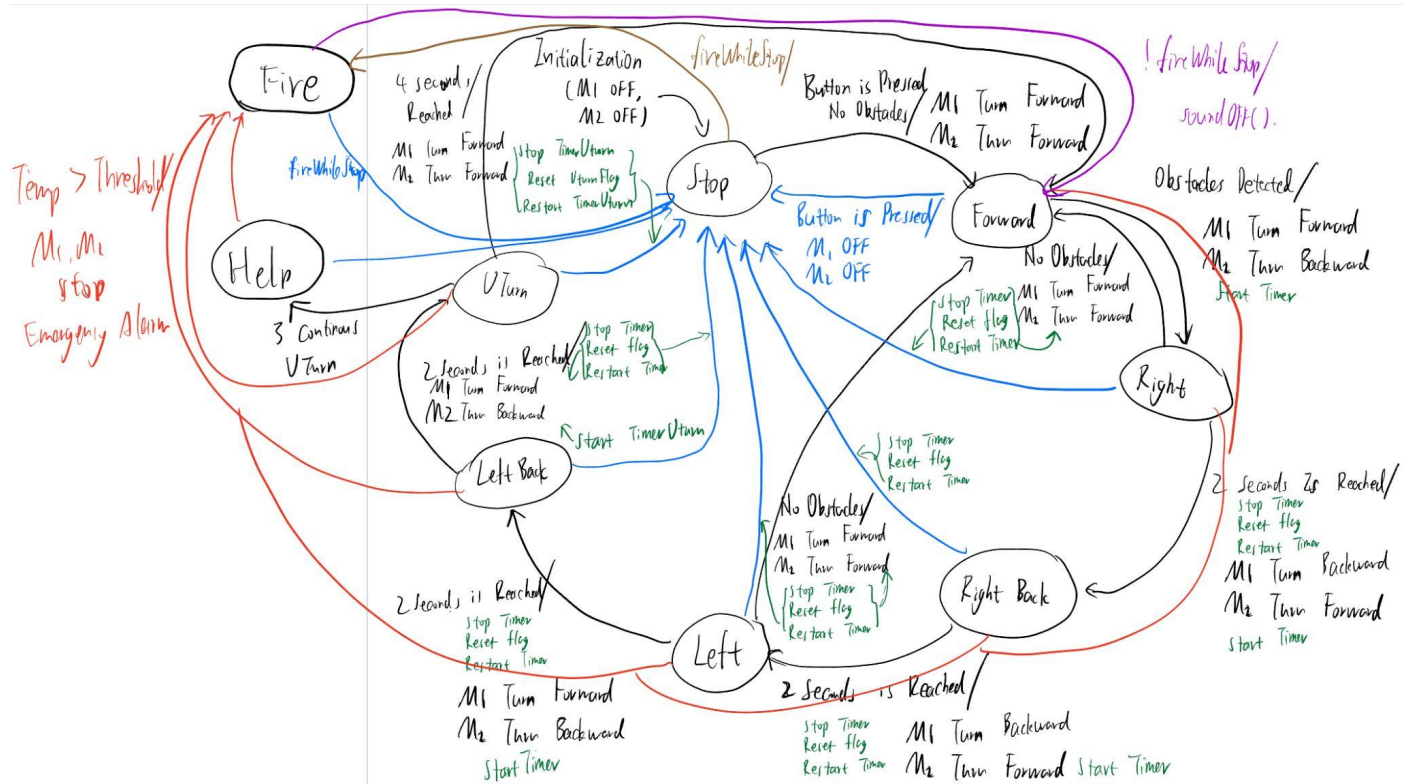 Fire
4 seconds/
Reached
M1 Turn Forward
M2 Turn Forward
Initialization
(M1 OFF,
M2 OFF)
fireWhileStop/
Button is Pressed/
No Obstacles
M1 Turn Forward
M2 Turn Forward
! fireWhileStop/
soundOFF().
Temp > Threshold/
M1, M2
stop
Emergency Alarm
fireWhileStop
Stop TimerUturn
Reset UturnFlag
Restart TimerUturn
Stop
Button is Pressed/
M1 OFF
M2 OFF
Forward
Obstacles Detected/
M1 Turn Forward
M2 Turn Backward
Start Timer
Help
UTurn
3 Continous
UTurn
No Obstacles/
M1 Turn Forward
M2 Turn Forward
Stop Timer
Reset flag
Restart Timer
Right
2 Seconds is Reached/
M1 Turn Forward
M2 Turn Backward
Stop Timer
Reset flag
Restart Timer
Start TimerUturn
Left Back
Stop Timer
Reset flag
Restart Timer
2 Seconds Is Reached/
Stop Timer
Reset flag
Restart Timer
M1 Turn Backward
M2 Turn Forward
Start Timer
No Obstacles/
M1 Turn Forward
M2 Turn Forward
Stop Timer
Reset flag
Restart Timer
Right Back
Left
2 Seconds is Reached/
Stop Timer
Reset flag
Restart Timer
M1 Turn Forward
M2 Turn Backward
Start Timer
2 Seconds is Reached/
Stop Timer
Reset flag
Restart Timer
M1 Turn Backward
M2 Turn Forward Start Timer